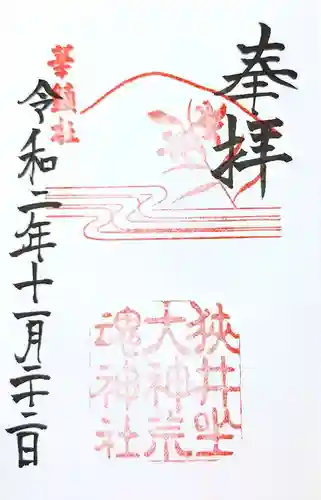 奉拝
華鎮社
令和二年十一月二十二日
狭井坐
大神荒
魂神社